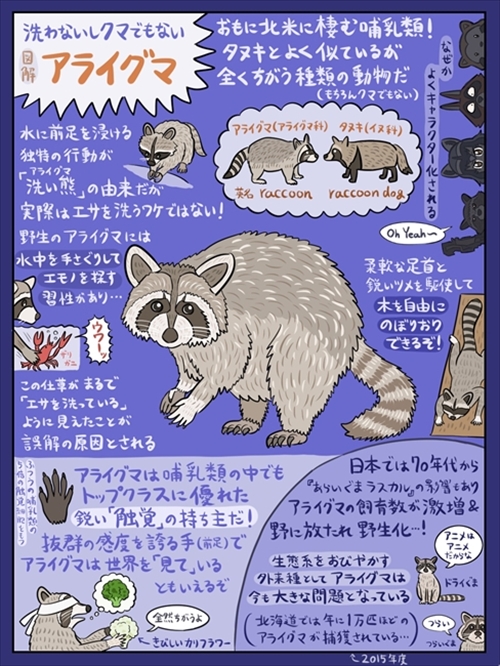 洗わないしクマでもない
図解
アライグマ
おもに北米に棲む哺乳類!
タヌキとよく似ているが
全くちがう種類の動物だ
(もちろんクマでもない)
なぜか
よくキャラクター化される
Oh Yeah〜
水に前足を浸ける
独特の行動が
アライグマ
「洗い熊」の由来だが
実際はエサを洗うワケではない!
アライグマ(アライグマ科)
タヌキ(イヌ科)
英名 raccoon
raccoon dog
野生のアライグマには
水中を手さぐりして
エモノを探す
習性があり…
ウワーッ
ザリガニ
この仕草がまるで
「エサを洗っている」
ように見えたことが
誤解の原因とされる
柔軟な足首と
鋭いツメを駆使して
木を自由に
のぼりおり
できるぞ!
アライグマは哺乳類の中でも
トップクラスに優れた
鋭い「触覚」の持ち主だ!
抜群の感度を誇る手(前足)で
アライグマは世界を「見て」いる
ともいえるぞ
全然ちがうよ
きびしいカリフラワー
日本では70年代から
『あらいぐまラスカル』の影響もあり
アライグマの飼育数が激増&
野に放たれ野生化…!
アニメは
アニメ
だからな
ドライぐま
生態系をおびやかす
外来種としてアライグマは
今も大きな問題となっている
(北海道では年に1万匹ほどの
アライグマが捕獲されている…)
2015年度
つらい
つらいぐま